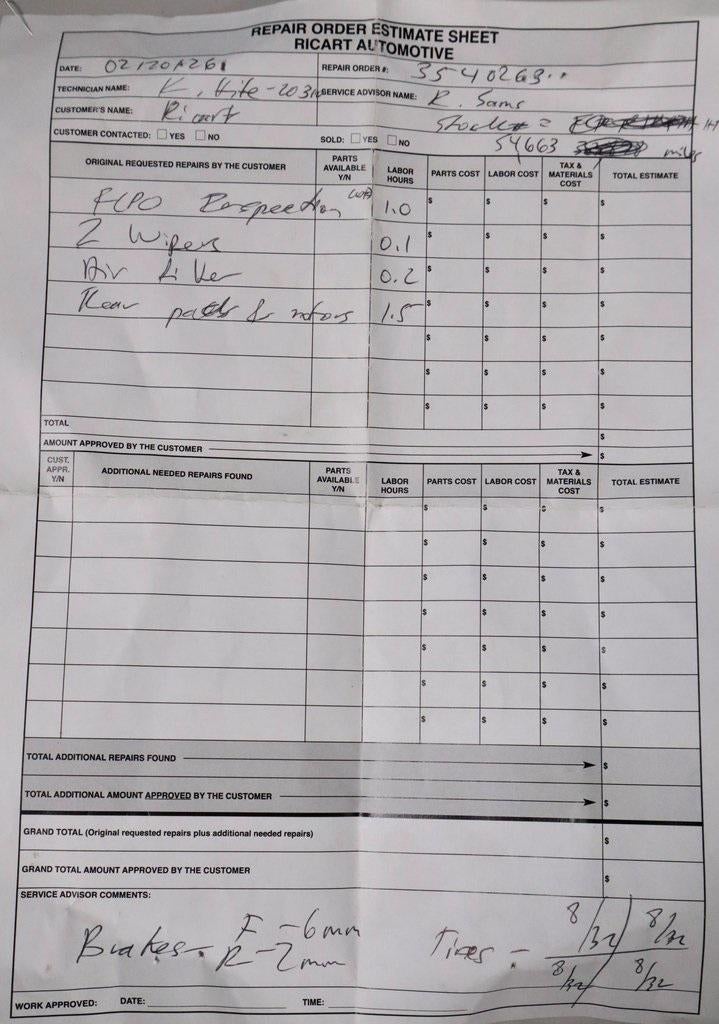 REPAIR ORDER ESTIMATE SHEET
RICART AUTOMOTIVE
DATE:
REPAIR ORDER #: 3540263
TECHNICIAN NAME: K. Hite - 2031
SERVICE ADVISOR NAME: R. Sams
CUSTOMER'S NAME: Ricart
Stock # =
CUSTOMER CONTACTED: YES NO SOLD: YES NO
54663 miles
ORIGINAL REQUESTED REPAIRS BY THE CUSTOMER PARTS AVAILABLE Y/N LABOR HOURS PARTS COST LABOR COST TAX & MATERIALS COST TOTAL ESTIMATE
FCPO Inspection 1.0 $ $ $ $
2 Wipers 0.1 $ $ $ $
Air filter 0.2 $ $ $ $
Rear pads & rotors 1.5 $ $ $ $
$ $ $ $
$ $ $ $
$ $ $ $
TOTAL $
AMOUNT APPROVED BY THE CUSTOMER $
CUST. APPR. Y/N ADDITIONAL NEEDED REPAIRS FOUND PARTS AVAILABLE Y/N LABOR HOURS PARTS COST LABOR COST TAX & MATERIALS COST TOTAL ESTIMATE
$ $ $ $
$ $ $ $
$ $ $ $
$ $ $ $
$ $ $ $
$ $ $ $
$ $ $ $
TOTAL ADDITIONAL REPAIRS FOUND $
TOTAL ADDITIONAL AMOUNT APPROVED BY THE CUSTOMER $
GRAND TOTAL (Original requested repairs plus additional needed repairs) $
GRAND TOTAL AMOUNT APPROVED BY THE CUSTOMER $
SERVICE ADVISOR COMMENTS:
Brakes - F - 6mm
R - 2mm
Tires - 8/32 8/32
8/32 8/32
WORK APPROVED: DATE: TIME: